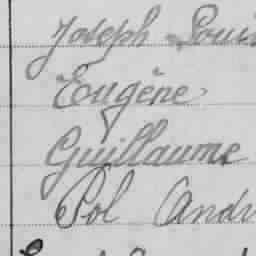 Joseph Louis
Eugène
Guillaume
Pol